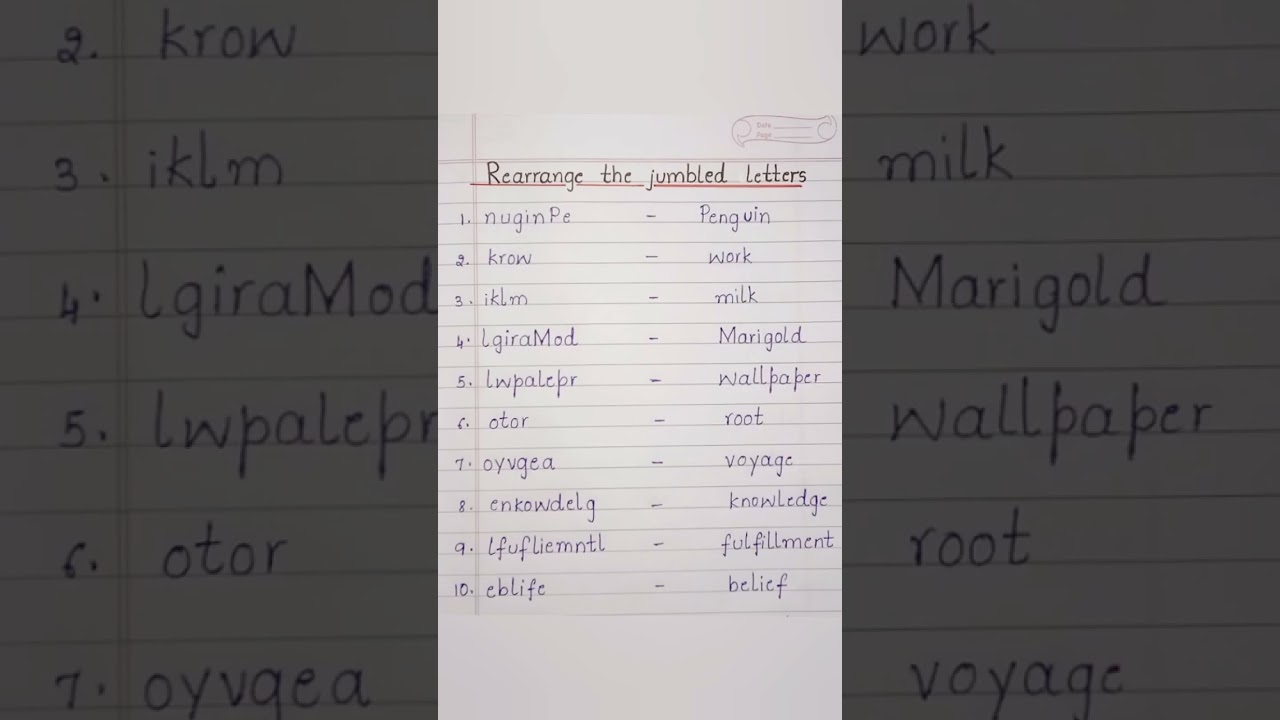 Date
Page
Rearrange the jumbled letters
1. nuginPe - Penguin
2. krow - work
3. iklm - milk
4. lgiraMod - Marigold
5. lwpalepr - wallpaper
6. otor - root
7. oyvgea - voyage
8. enkowdelg - knowledge
9. lfufliemntl - fulfillment
10. eblife - belief
2. krow work
3. iklm milk
4. lgiraMod Marigold
5. lwpalepr wallpaper
6. otor root
7. oyvgea voyage